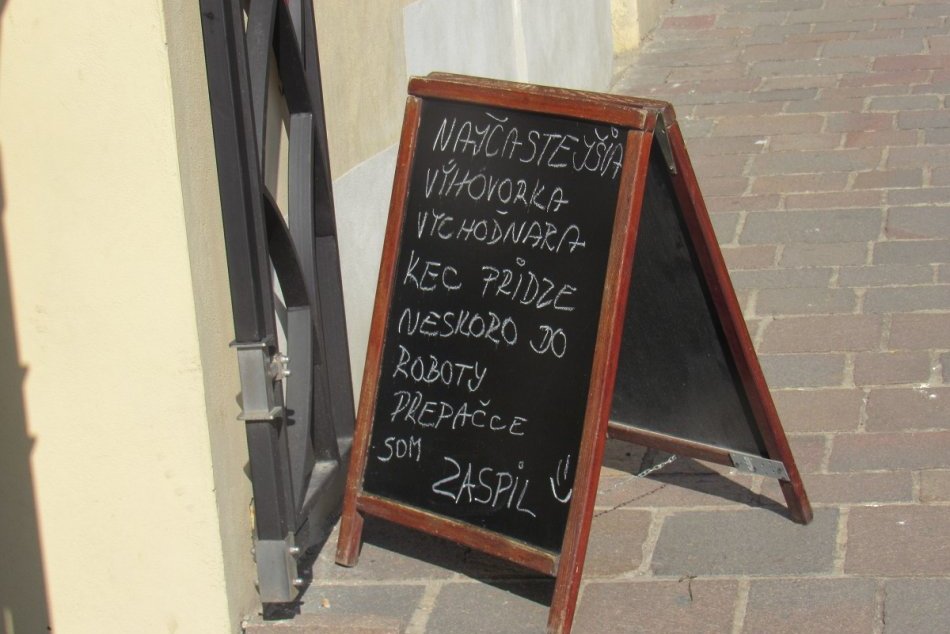 NAJČASTEJŠIA
VÍHOVORKA
VYCHODŇARA
KEC PRIDZE
NESKORO DO
ROBOTY
PREPAČCE
SOM
ZASPIL